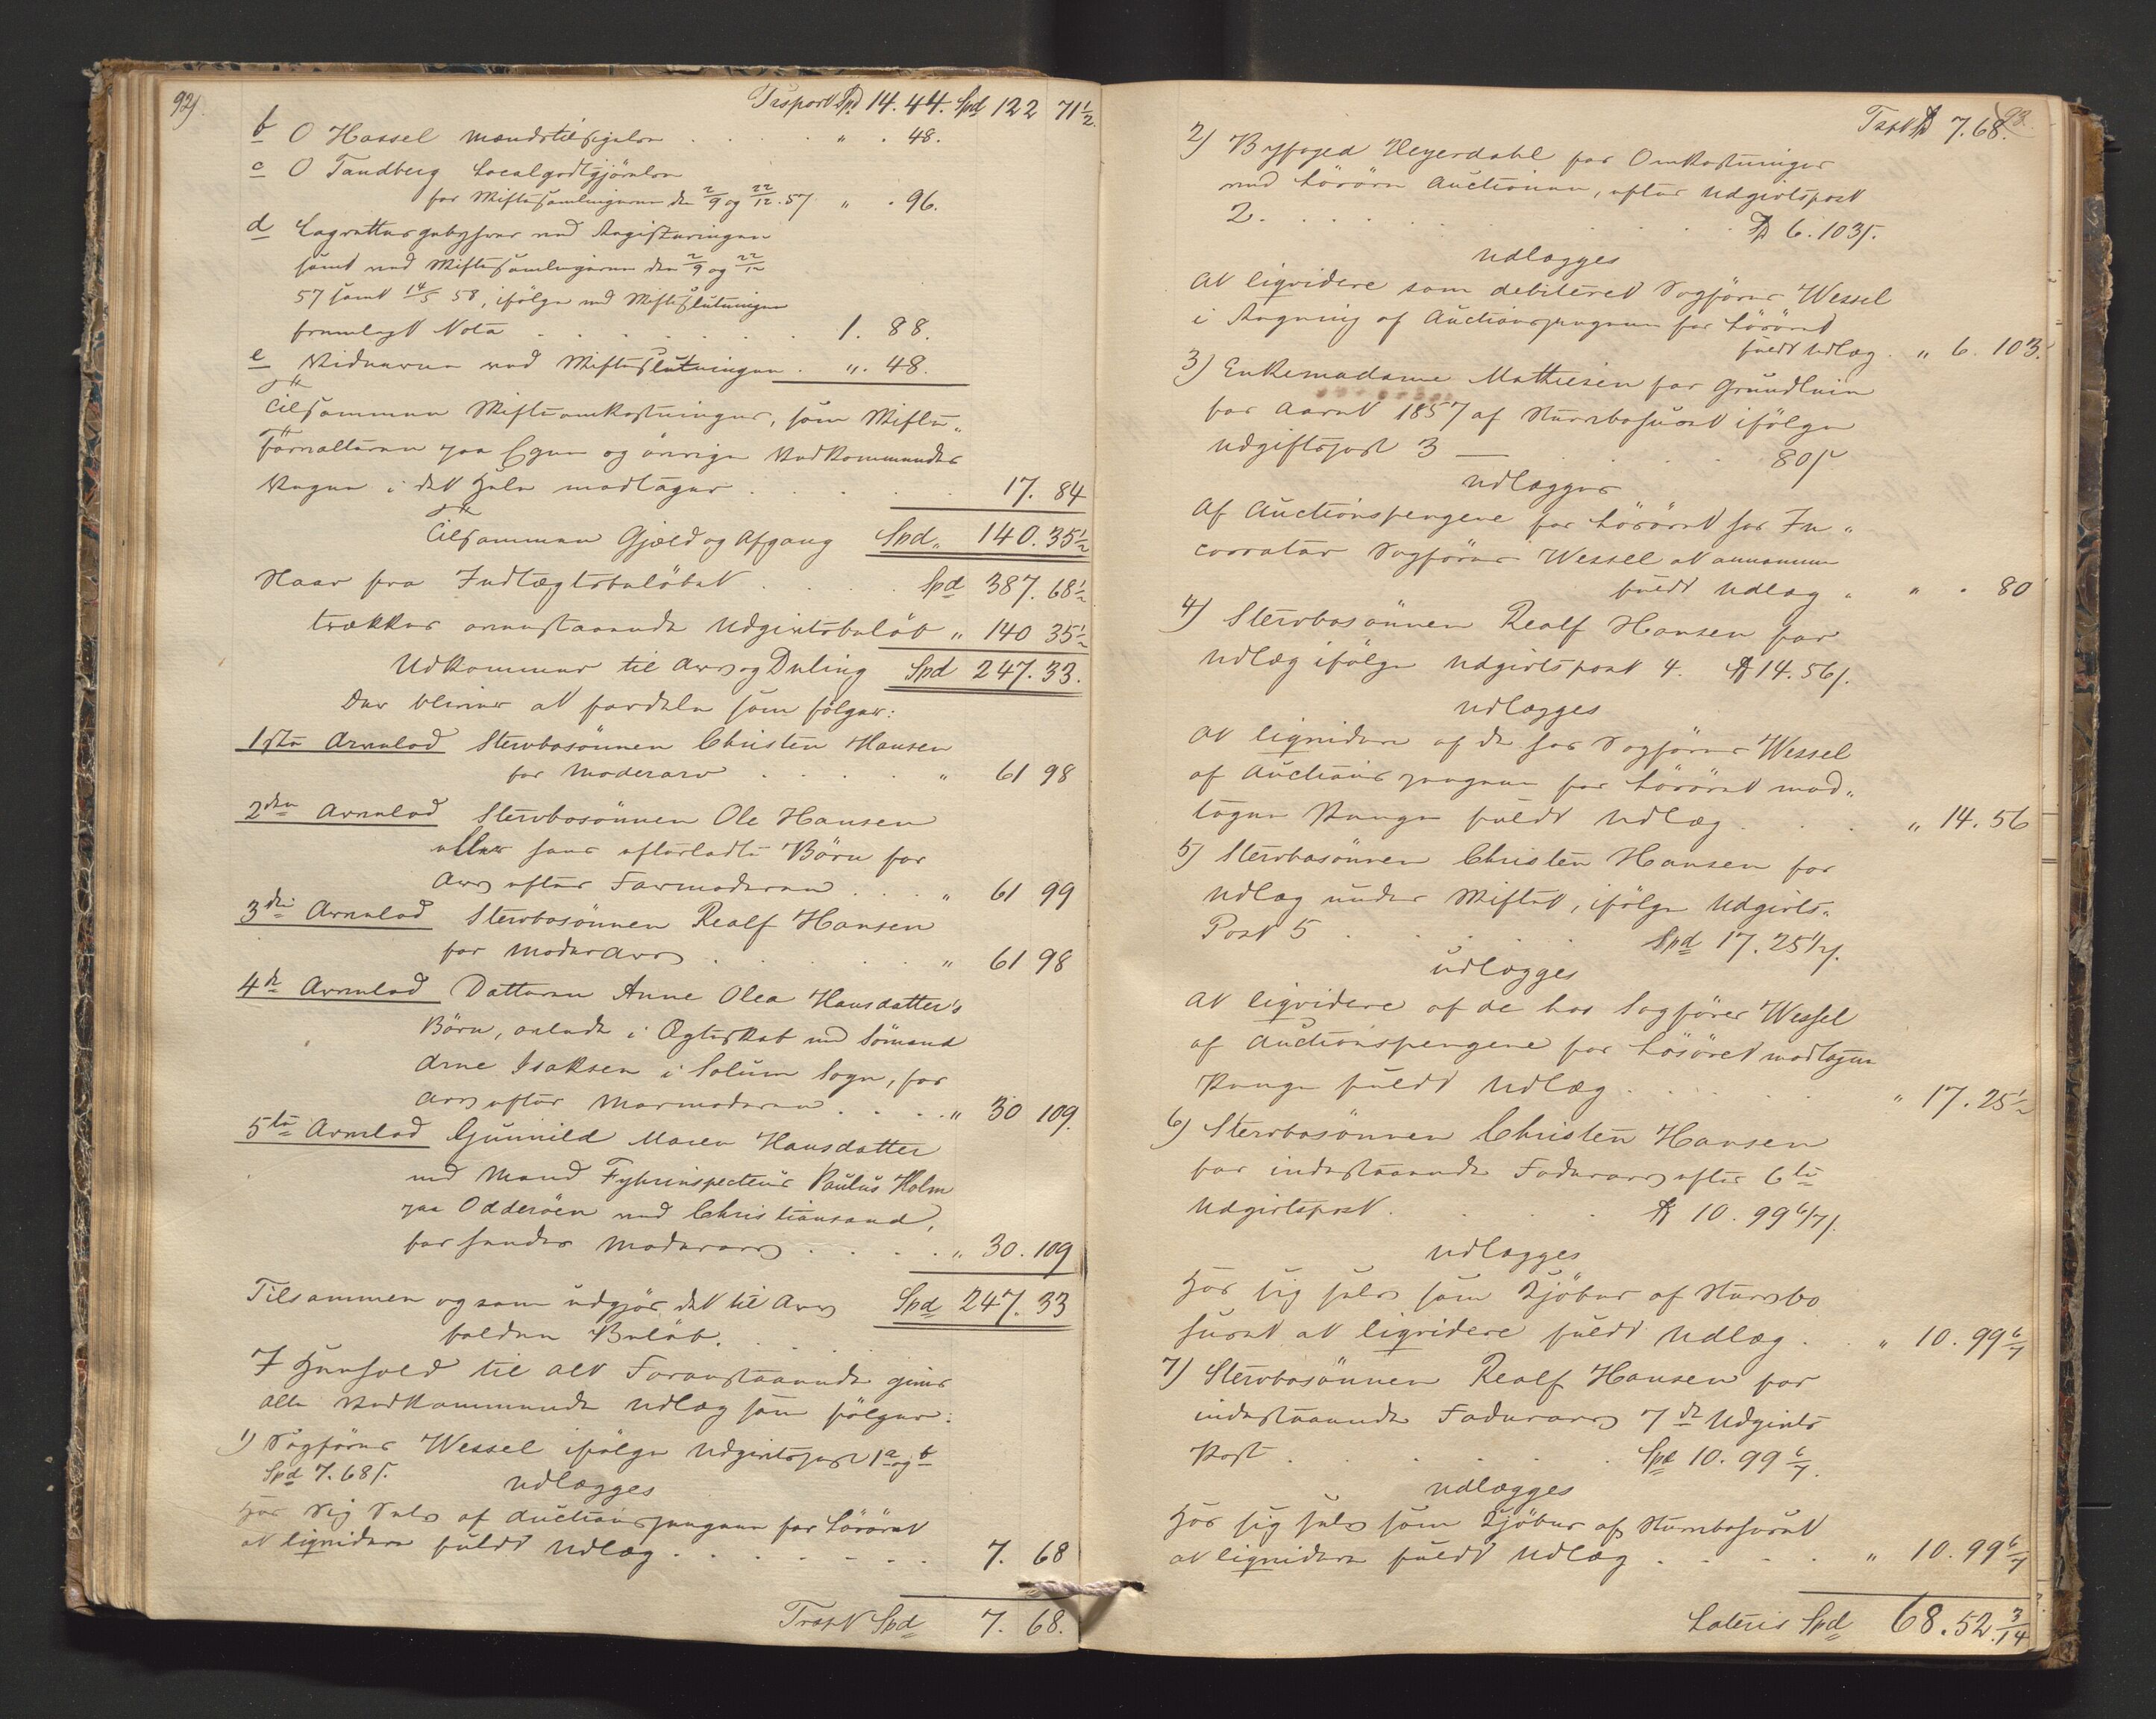 92).
Trsport Spd 14. 44. Spd 122 71½.
b O Hassel Mændstilsigelse . . . . " . 48.
c O Tandberg Localgodtgjörelse
for Skiftesamlingerne den 2/9 og 22/12. 57 " . 96.
d Lagrettesgebyhrer ved Registeringen
samt ved Skiftesamlingerne den 2/9 og 22/12
57 samt 14/5 58, ifölge ved Skifteslutningen
fremlagt Nota . . . . . . . 1. 88.
e Vidnerne ved Skifteslutningen . ". 48.
Tilsammen Skifteomkostninger, som Skifte„
forvalteren paa Egne og övrige Vedkommendes
Vegne i det Hele modtager . . . . . 17. 84
Tilsammen Gjæld og Afgang Spd„ 140. 35½
Naar fra Indtægtsbelöbet . . . . Spd 387. 68½
trækkes ovenstaaende Udgivtsbelöb " 140 35½
Udkommer til Arv og Deling Spd 247. 33.
Der bliver at fordele som følger:
1ste Arvelod Stervbosönnen Christen Hansen
for Moderarv . . . . . " 61 98
2den Arvelod Stervbosönnen Ole Hansen
eller hans efterladte Börn for
Arv efter Farmoderen . . . " 61 99
3die Arvelod Stervbosönnen Realf Hansen
for Moderarv . . . . . . " 61 98
4de Arvelod Datteren Anne Olea Hansdatter's
Börn, avlede i Ægteskab med Sömand
Arne Isaksen i Solum Sogn, for
Arv efter Mormoderen . . . . " 30 109.
5te Arvelod Gunnild Maren Hansdatter
med Mand Fyhrinspecteur Paulus Holm
paa Odderöen ved Christiansand,
for hendes Moderarv . . . . . " 30. 109
Tilsammen og som udgjör det til Arv Spd 247. 33
faldne Belöb. . . . .
I Henhold til alt Foranstaaende gives
alle Vedkommende Udlæg som fölger:
1) Sagförer Wessel ifölge Udgivtspost 1 a og b
Spd 7. 68 s.
udlægges
hos Sig Selv af Auctionspengene for Lösöret
at liqvidere fuldt Udlæg . . . . . . . . 7. 68
Trspt Spd 7. 68.
Trspt Spd 7. 68.
93.
2) Byfoged Heyerdahl for Omkostninger
ved Lösöre Auctionen, efter Udgivtspost
2. . . . . . . . . . . Spd 6. 103 s.
udlægges
at liqvidere som debiteret Sagförer Wessel
i Regning af Auctionspengene for Lösöret
fuldt Udlæg . " 6. 103.
3) Enkemadame Mathiesen for Grundleie
for Aaret 1857 af Stervbohuset ifölge
Udgiftspost 3 — . . . . 80 s
udlægges
Af Auctionspengene for Lösöret hos In„
cassator Sagförer Wessel at annamme
fuldt Udlæg . " . 80
4) Stervbosönnen Realf Hansen for
Udlæg ifölge Udgivtspost 4. Spd 14. 56 s.
udlægges
At liqvidere af de hos Sagförer Wessel
af Auctionspengene for Lösöret mod„
tagne Penge fuldt Udlæg . . . . " 14. 56
5) Stervbosönnen Christen Hansen for
Udlæg under Skiftet, ifölge Udgivts„
Post 5 . . . . . . Spd 17. 25½ s.
udlægges
At liqvidere af de hos Sagförer Wessel
af Auctionspengene for Lösöret modtagne
Penge fuldt Udlæg . . . . . " 17. 25½
6) Stervbosönnen Christen Hansen
for indestaaende Faderarv efter 6te
Udgivtspost . . . . . Spd 10. 99 6/7 s.
udlægges
Hos sig selv som Kjöber af Stervbo
huset at liqvidere fuldt Udlæg . . " 10. 99 6/7
7) Stervbosönnen Realf Hansen for
indestaaende Faderarv 7de Udgivts
Post . . . . . . . Spd 10. 99 6/7.
udlægges
Hos sig selv som Kjöber af Stervbohuset
at liqvidere fuldt Udlæg . . . . . " 10. 99 6/7
Lateris Spd 68. 52. 3/14